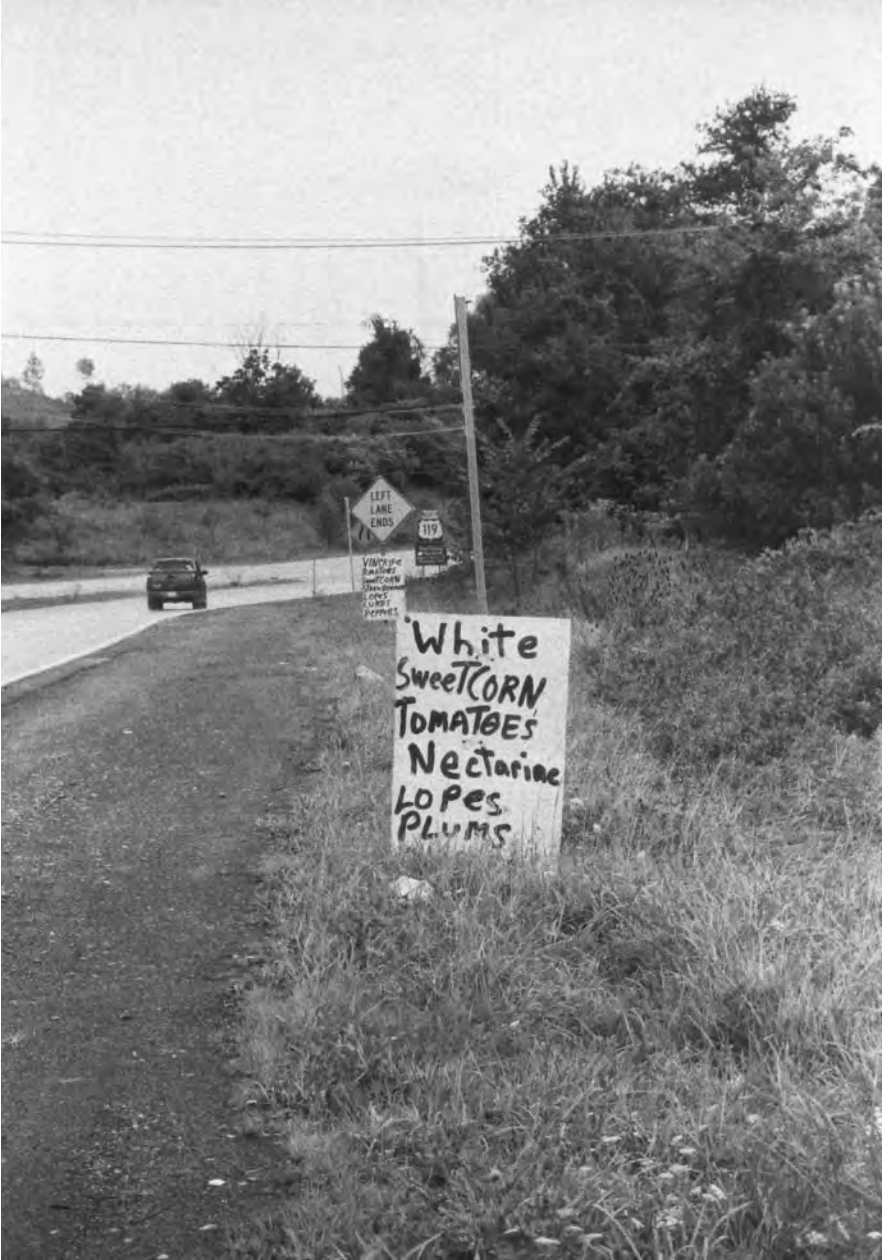 LEFT
LANE
ENDS
119
VINERIPE
TOMATOES
SweeTCORN
LOPES
CUKES
PEPPERS
White
SweeTCORN
TOMATOES
Nectarine
LOPes
PLUMS